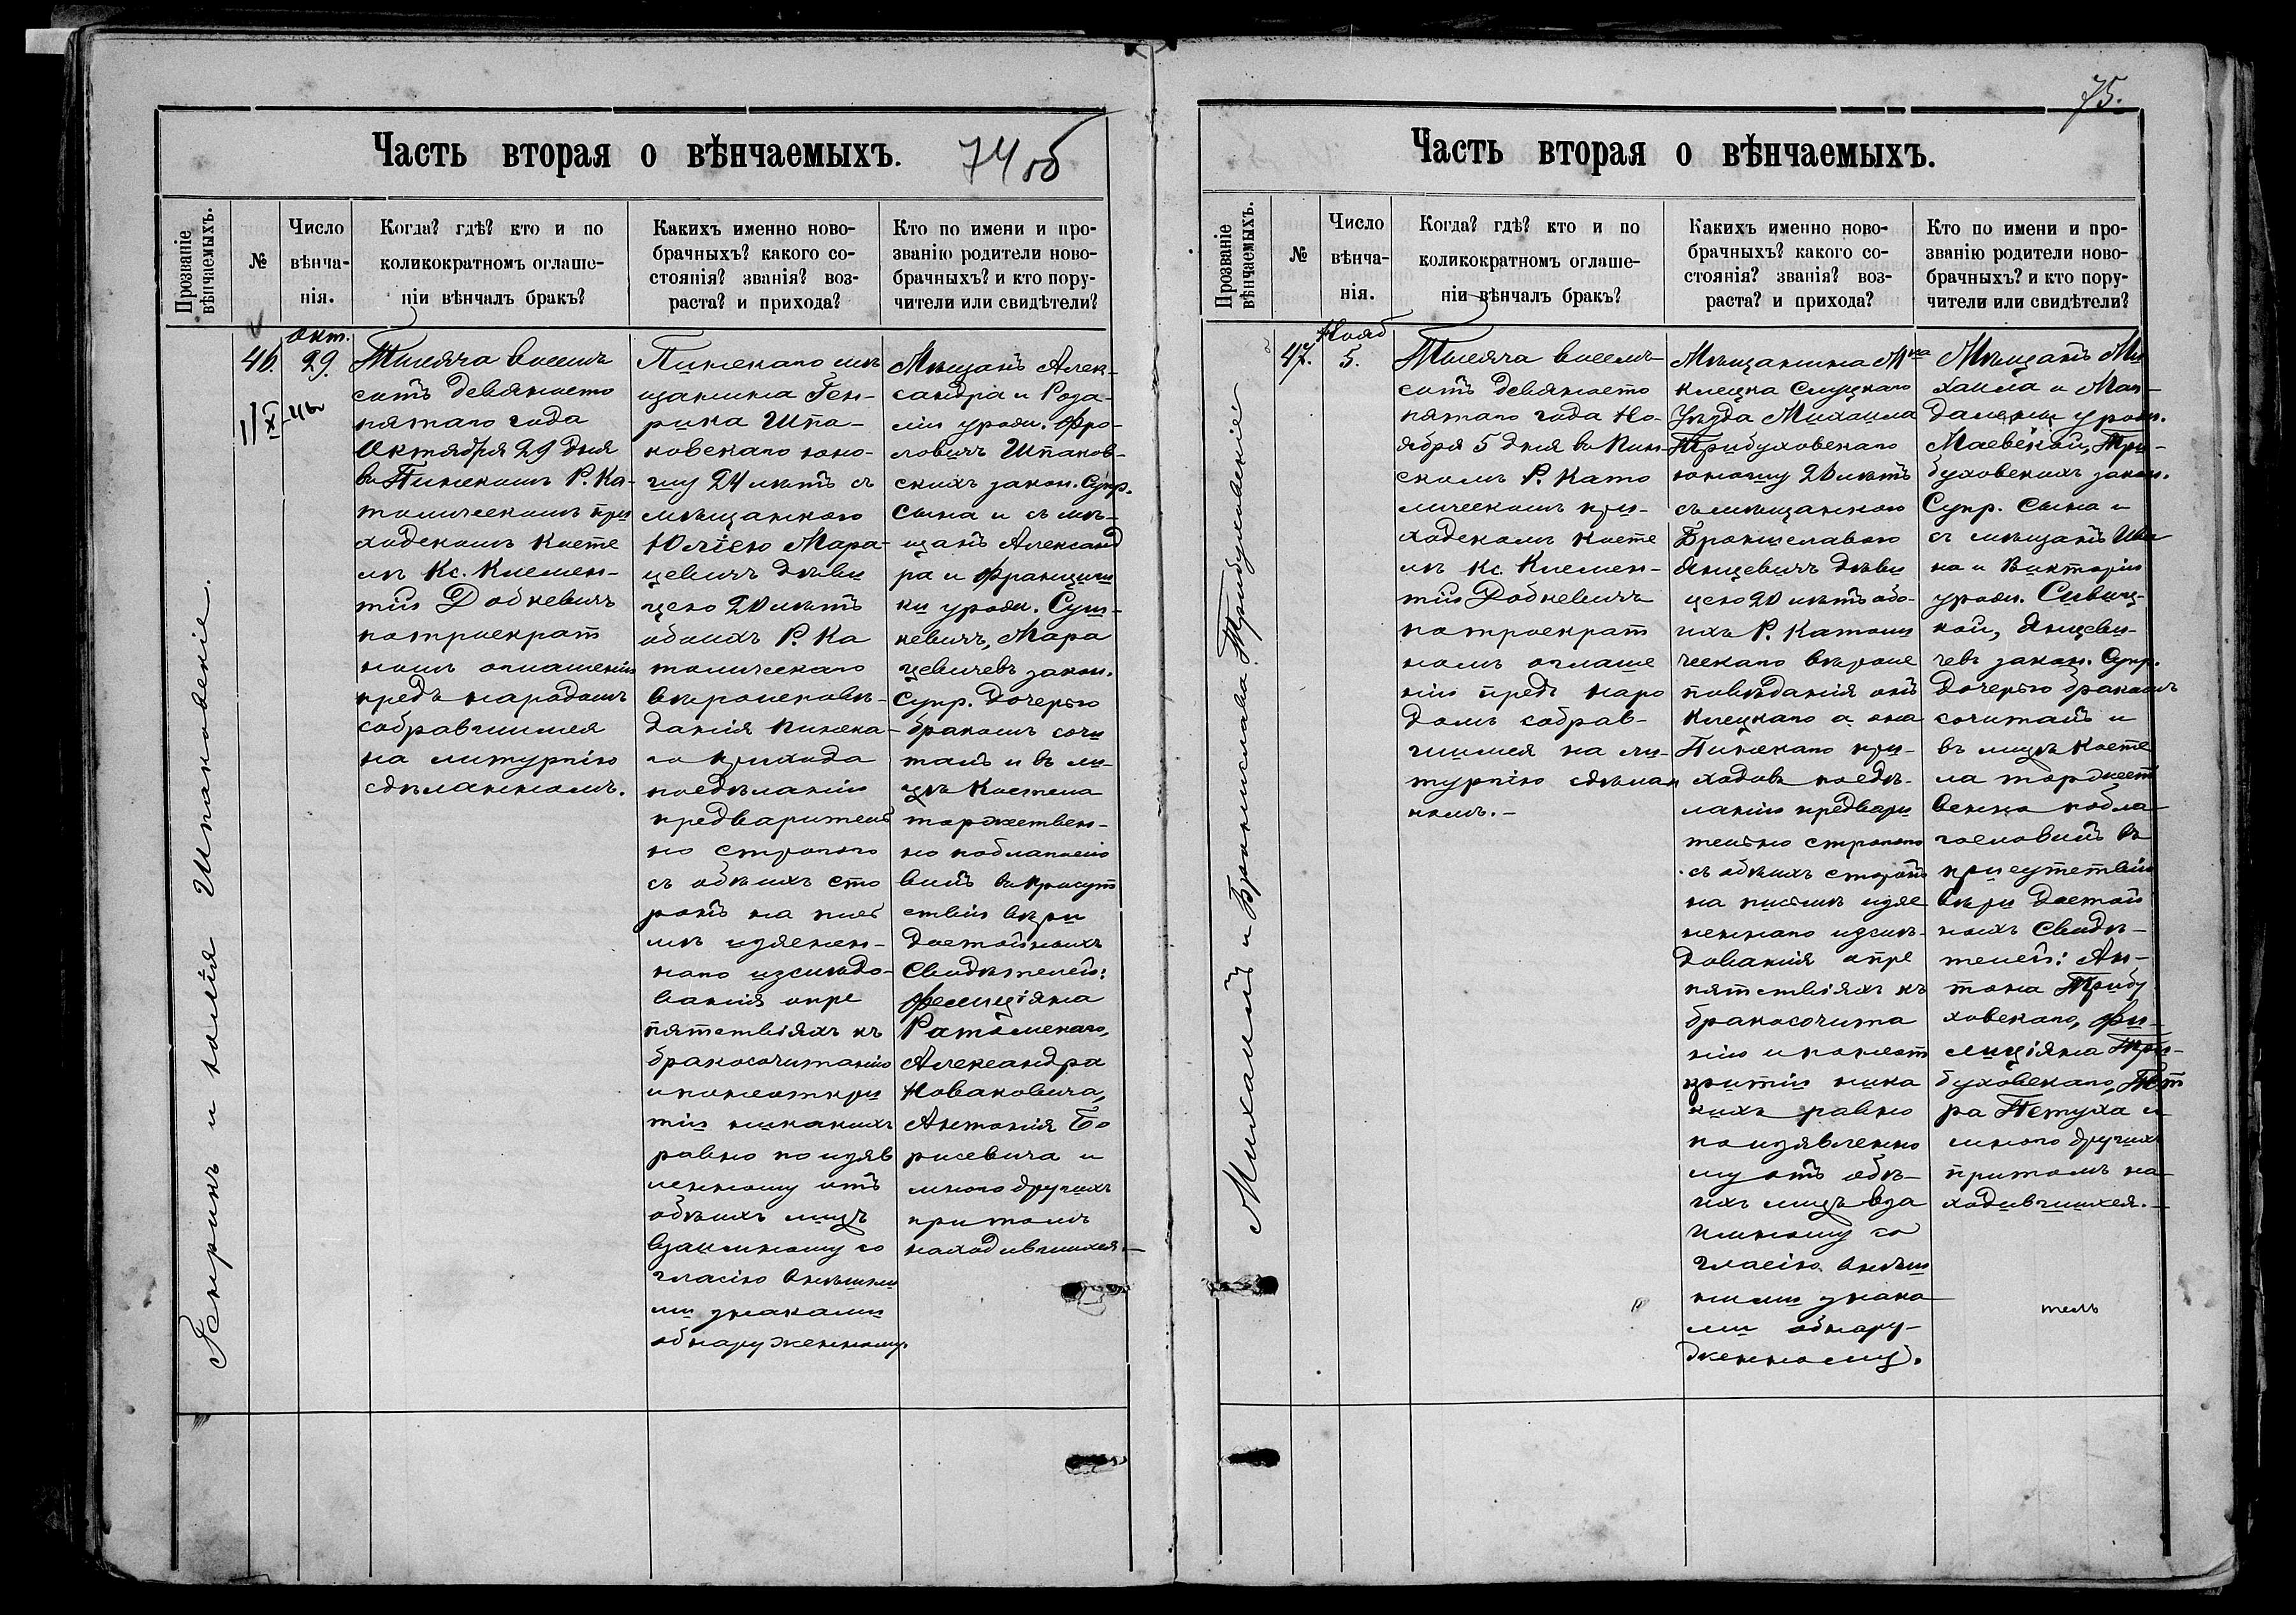 Часть вторая о вѣнчаемыхъ.
74 об
Прозваніе вѣнчаемыхъ.
№
Число вѣнча-
нія.
Когда? гдѣ? кто и по
коликократномъ оглаше-
ніи вѣнчалъ бракъ?
Какихъ именно ново-
брачныхъ? какого со-
стоянія? званія? воз-
раста? и прихода?
Кто по имени и про-
званію родители ново-
брачныхъ? и кто пору-
чители или свидѣтели?
Генрикъ и Юлія Шпаковскіе.
46.
окт.
29.
Тысяча восемь
сотъ девяносто
пятаго года
Октября 29 дня
въ Пинскомъ Р. Ка-
толическомъ при
ходскомъ косте
лѣ Кс. Клемен-
тій Добкевичъ
по троекрат
номъ оглашеніи
предъ народомъ
собравшимся
на литургію
сдѣланномъ.
Пинскаго мѣ
щанина Ген-
рика Шпа-
ковскаго юно-
шу 24 лѣтъ съ
мѣщанкою
Юліею Мара-
цевичъ дѣви
цею 20 лѣтъ
обоихъ Р. Ка
толическаго
вѣроисповѣ-
данія Пинска-
го прихода
по сдѣланіи
предваритель
но строгаго
съ обѣихъ сто
ронъ на пись
мѣ изяснен-
наго изслѣдо-
ванія о пре
пятствіяхъ къ
бракосочитанію
и по неоткры
тіи никакихъ
равно по изяв
ленному отъ
обѣихъ лицъ
взаимному со
гласію внѣшни
ми знаками
обнаруженному.
Мѣщанъ Алек-
сандра и Роза-
ліи урожд. Фро-
ловичъ Шпаков-
скихъ закон. Супр.
сына и съ мѣ-
щанъ Александ
ра и Францишки
урожд. Суш-
кевичъ, Мара
цевичевъ закон.
Супр. дочерью
бракомъ сочи
талъ и въ ли-
цѣ Костела
торжествен-
но поблагосло
вилъ въ присут
ствіи вѣри
достойныхъ
Свидѣтелей:
Фелиціяна
Ратомскаго,
Александра
Новаковича,
Антонія Бо
рисевича и
много другихъ
притомъ
находившихся.—
75.
Часть вторая о вѣнчаемыхъ.
Прозваніе вѣнчаемыхъ.
№
Число
вѣнча-
нія.
Когда? гдѣ? кто и по
коликократномъ оглаше-
ніи вѣнчалъ бракъ?
Какихъ именно ново-
брачныхъ? какого со-
стоянія? званія? воз-
раста? и прихода?
Кто по имени и про-
званію родители ново-
брачныхъ? и кто пору-
чители или свидѣтели?
Михаилъ и Брониславa Трибуховскіе
47.
Нояб
5.
Тысяча восемь
сотъ девяносто
пятаго года Но-
ября 5 дня въ Пин-
скомъ Р. Като
лическомъ при-
ходскомъ косте
лѣ Кс. Клемен-
тій Добкевичъ
по троекрат
номъ оглаше
ніи предъ наро
домъ собрав-
шимся на ли-
тургію сдѣлан
номъ.—
Мѣщанина М-ка
Клецка Слуцкаго
Уѣзда Михаила
Трибуховскаго
юношу 26 лѣтъ
съ мѣщанкою
Брониславою
Янцевичъ дѣви
цею 20 лѣтъ обо-
ихъ Р. Католи
ческаго вѣроис
повѣданія онъ
Клецкаго а она
Пинскаго при-
ходовъ по сдѣ-
ланіи предвари
тельно строгаго
съ обѣихъ сторонъ
на письмѣ изяс
неннаго изслѣ-
дованія о пре
пятствіяхъ къ
бракосочита
нію и по неот
крытіи ника
кихъ равно
по изявленно
му отъ обѣ-
ихъ лицъ вза
имному со
гласію внѣш
ними знака
ми обнару-
женному.
Мѣщанъ Ми
хаила и Маг-
далены урожд.
Маевской, Три-
буховскихъ закон.
Супр. сына и
съ мѣщанъ Ива
на и Викторіи
урожд. Сивиц-
кой, Янцеви-
чевъ закон. Супр.
дочерью бракомъ
сочиталъ и
въ лицѣ Косте
ла торжест
венно побла-
гословилъ въ
присутствіи
вѣри достой
ныхъ Свидѣ-
телей: Ан-
тона Трибу
ховскаго, Фе-
лиціяна Три-
буховскаго, Пет
ра Петуха и
много другихъ
притомъ на
ходившихся.—